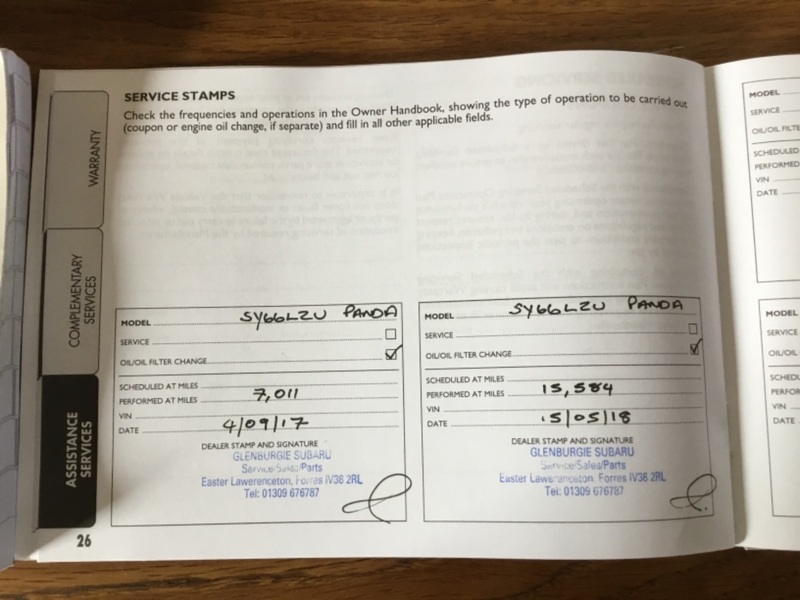 SERVICE STAMPS
Check the frequencies and operations in the Owner Handbook, showing the type of operation to be carried out
(coupon or engine oil change, if separate) and fill in all other applicable fields.
WARRANTY
COMPLEMENTARY
SERVICES
ASSISTANCE
SERVICES
MODEL SY66LZU PANDA
SERVICE
OIL/OIL FILTER CHANGE
SCHEDULED AT MILES
PERFORMED AT MILES 7,011
VIN
DATE 4/09/17
DEALER STAMP AND SIGNATURE
GLENBURGIE SUBARU
Service/Sales/Parts
Easter Lawerenceton, Forres IV36 2RL
Tel: 01309 676787
MODEL SY66LZU PANDA
SERVICE
OIL/OIL FILTER CHANGE
SCHEDULED AT MILES
PERFORMED AT MILES 15,584
VIN
DATE 15/05/18
DEALER STAMP AND SIGNATURE
GLENBURGIE SUBARU
Service/Sales/Parts
Easter Lawerenceton, Forres IV36 2RL
Tel: 01309 676787
26
MODEL
SERVICE
OIL/OIL FILT
SCHEDULED
PERFORMED
VIN
DATE
MODEL
SERVICE
OIL/OIL
SCHEDU
PERFOR
VIN
DATE